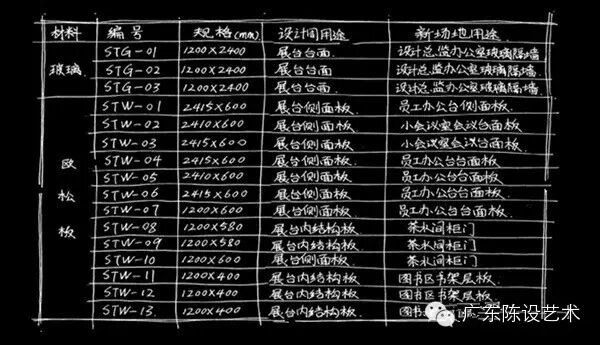 材料 编号 规格(mm) 设计间用途 新场地用途
玻璃
STG-01 1200×2400 展台台面 设计总监办公室玻璃隔墙
STG-02 1200×2400 展台台面 设计总监办公室玻璃隔墙
STG-03 1200×2400 展台台面 设计总监办公室玻璃隔墙
欧松板
STW-01 2415×600 展台侧面板 员工办公台侧面板
STW-02 2410×600 展台侧面板 小会议室会议台面板
STW-03 2415×600 展台侧面板 小会议室会议台面板
STW-04 2415×600 展台侧面板 员工办公台台面板
STW-05 2410×600 展台侧面板 员工办公台台面板
STW-06 2415×600 展台侧面板 员工办公台台面板
STW-07 1200×600 展台侧面板 员工办公台台面板
STW-08 1200×580 展台内结构板 茶水间柜门
STW-09 1200×580 展台内结构板 茶水间柜门
STW-10 1200×600 展台侧面板 茶水间柜门
STW-11 1200×400 展台内结构板 图书区书架层板
STW-12 1200×400 展台内结构板 图书区书架层板
STW-13 1200×400 展台内结构板 图书
广东陈设艺术